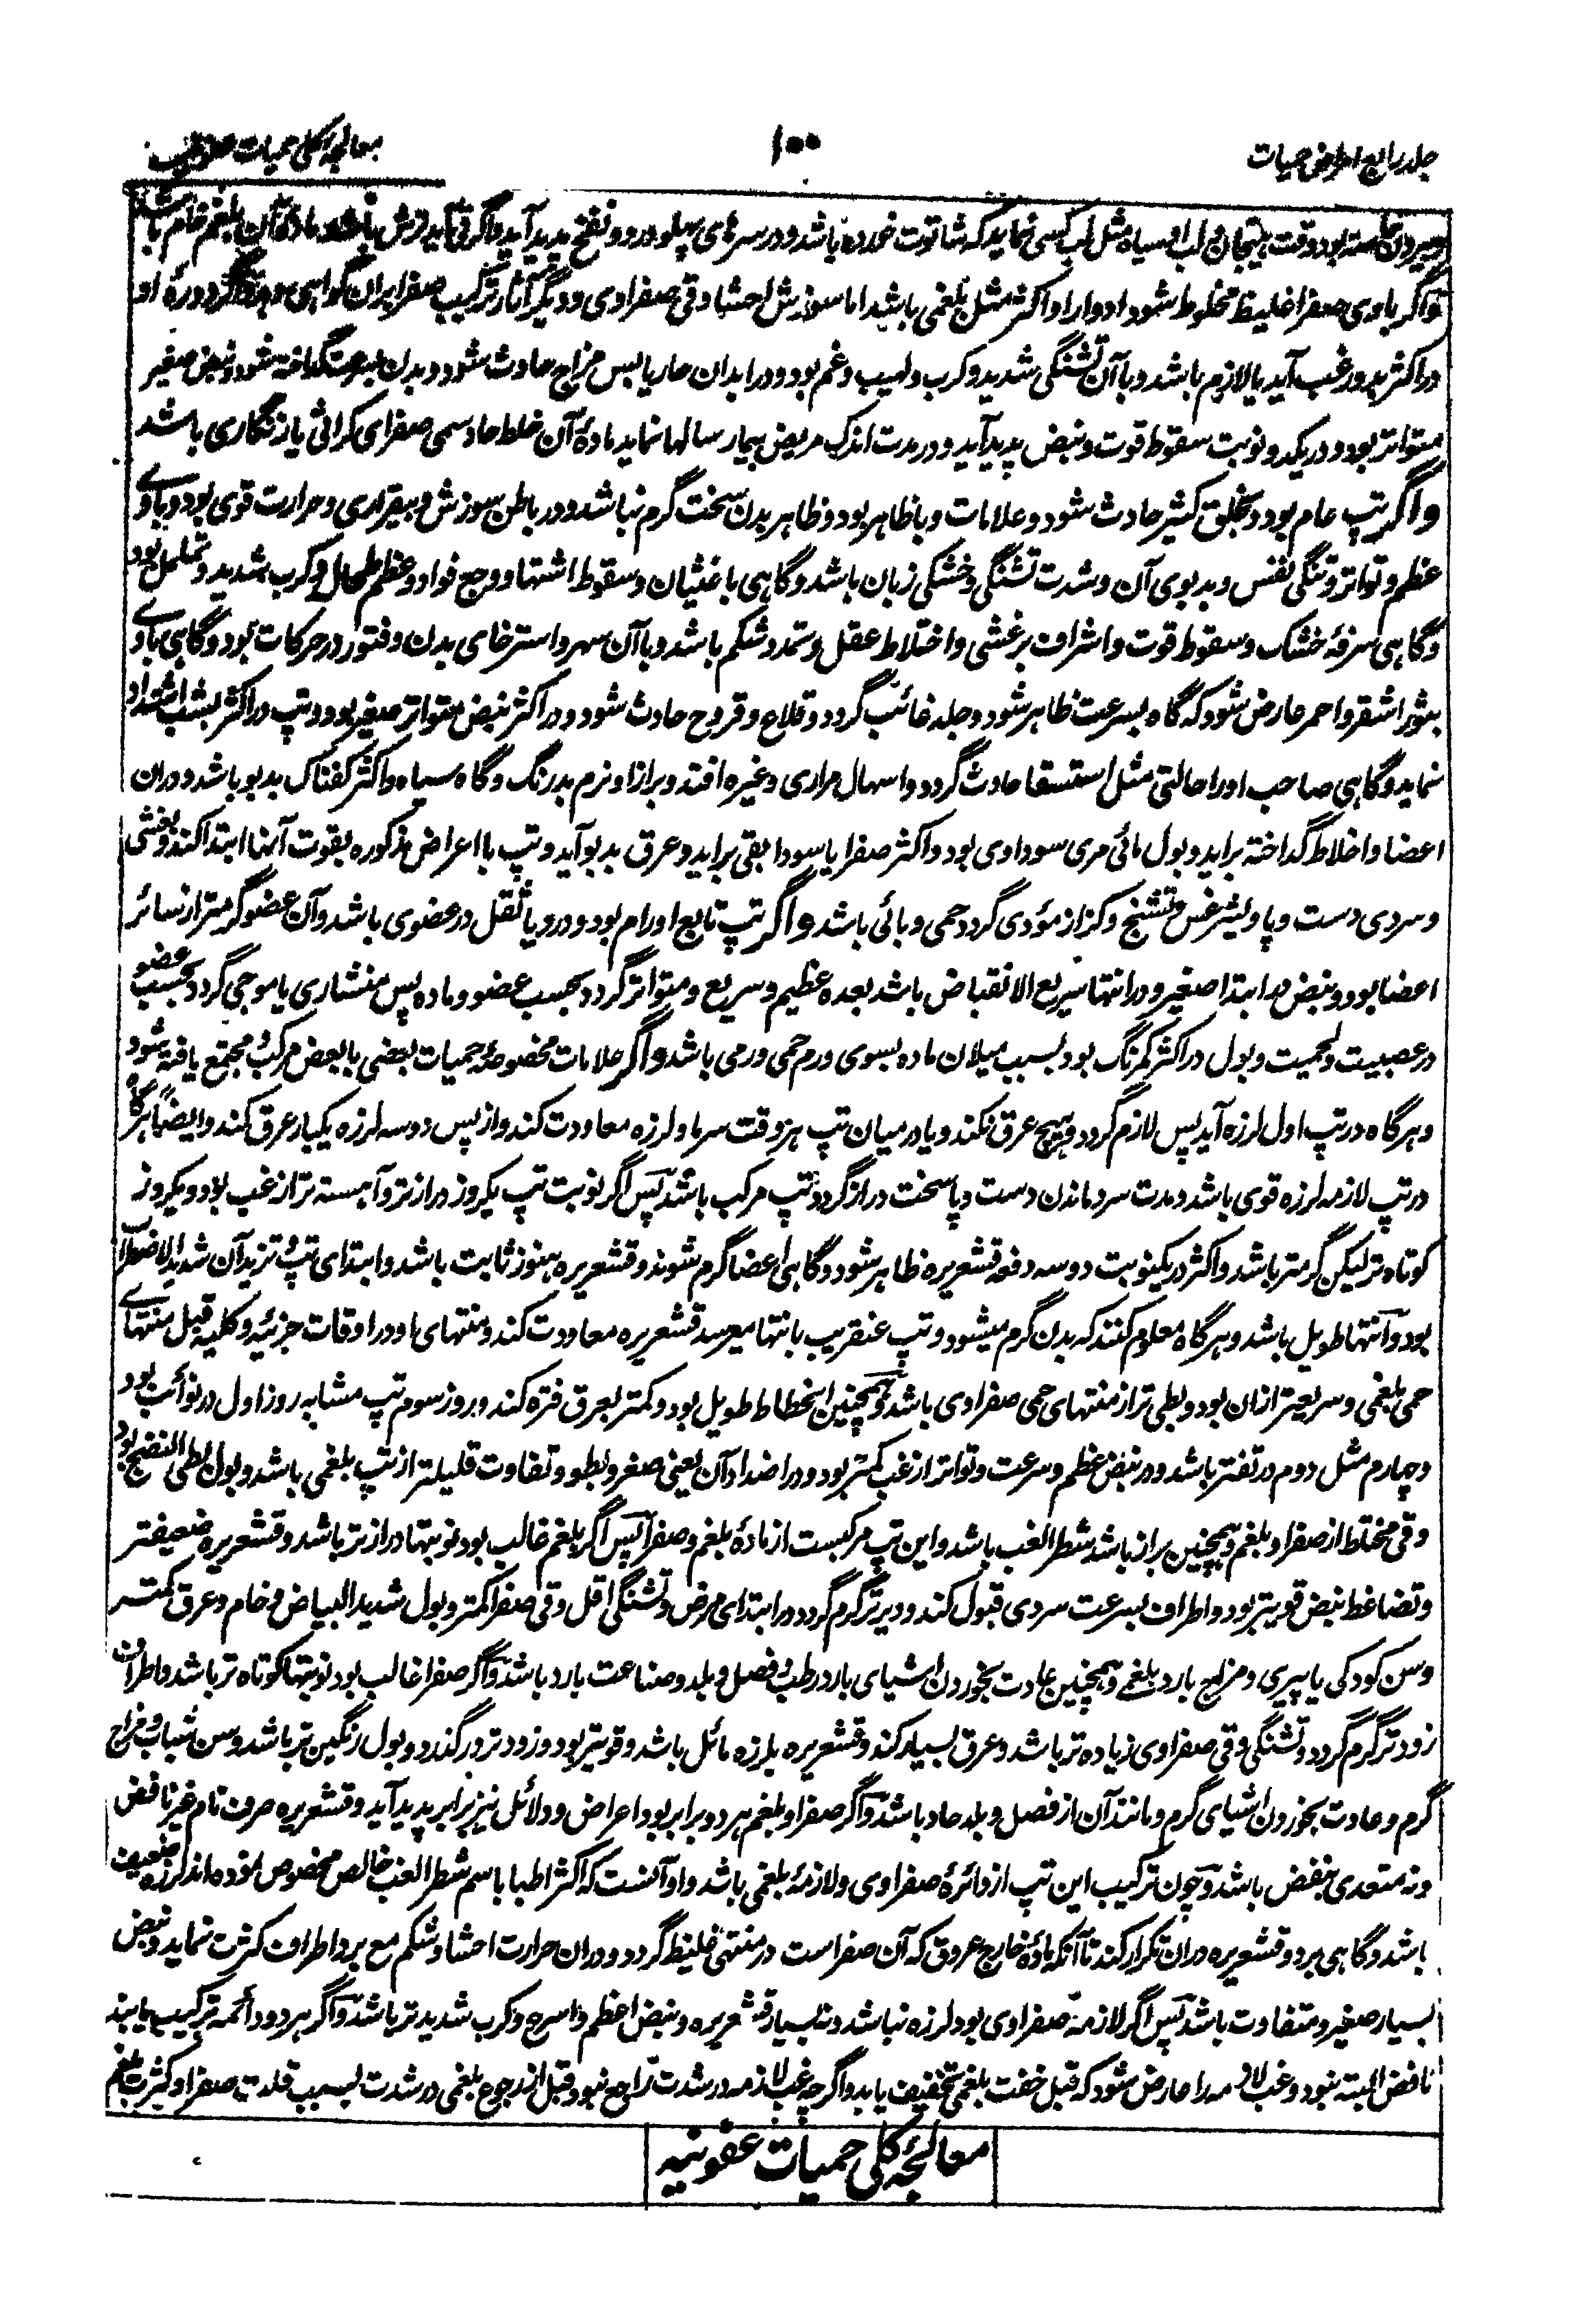 جلد رابع امراض حمیات
۱۰۰
معالجهٔ کلی حمیات عفونیه
بود وقت هیجان لب او سیاه مثل لب کسی نماید که شاتوت خورده باشد و در سرهای پهلو درد و نفخ پدید آید و اگر قی آید ترش باشد ماده آن بلغم خام باشد
و اگر باوی صفرا غلیظ مخلوط شود ادوار او اکثر مثل بلغمی باشد اما سوزش احشا و قی صفراوی و دیگر آثار ترکیب صفرا بران گواهی دهد و اگر دورهٔ او
در اکثر بدور غب آید یا لازم باشد و با آن تشنگی شدید و کرب و لهیب و غم بود و در ابدان حار یابس مزاج حادث شود و بدن بسرعت گداخته شود و نبض صغیر
متواتر بود و در یک دو نوبت سقوط قوت و نبض پدید آید و در مدت اندک مریض بیمار سالها نماید مادهٔ آن خلط حاد سمی صفرای کراثی یا زنگاری باشد
و اگر تپ عام بود و بخلق کثیر حادث شود و علامات وبا ظاهر بود و ظاهر بدن سخت گرم نباشد و در باطن سوزش و بیقراری و حرارت قوی بود و باوی
عظم و تواتر و تنگی نفس و بدبوی آن و شدت تشنگی و خشکی زبان باشد و گاهی با غثیان و سقوط اشتها و وجع فواد و عظم طحال و کرب شدید و تململ بود
و گاهی سرفهٔ خشک و سقوط قوت و اشراف بر غشی و اختلاط عقل و تمدد شکم باشد و با آن سهر و استرخای بدن و فتور در حرکات بود و گاهی باوی
بثور اشقر و احمر عارض شود که گاه بسرعت ظاهر شود و جلد غائب گردد و قلاع و قروح حادث شود و در اکثر نبض متواتر صغیر بود و تپ در اکثر بشب اشتداد
نماید و گاهی صاحب او را حالتی مثل استسقا حادث گردد و اسهال مراری و غیره افتد و براز او نرم بدرنگ و گاه سیاه و اکثر کفناک بدبو باشد و دران
اعضا و اخلاط گداخته براید و بول مائی مری سوداوی بود و اکثر صفرا یا سودا بقی براید و عرق بدبو آید و تپ با اعراض مذکوره بقوت آنها ابتدا کند و بغشی
و سردی دست و پا و لیثرغس و تشنج و کزاز مؤدی گردد حمی وبائی باشد و اگر تپ تابع اورام بود و درد یا ثقل در عضوی باشد و آن عضو گرمتر از سائر
اعضا بود و نبض در ابتدا صغیر و در انتها سریع الانقباض باشد بعده عظیم و سریع و متواتر گردد بحسب عضو و ماده پس منشاری یا موجی گردد بحسب عضو
در عصبیت و لحمیت و بول در اکثر کمرنگ بود بسبب میلان ماده بسوی ورم حمی ورمی باشد و اگر علامات مخصوصهٔ حمیات بعضی با بعض مرکب و مجتمع یافته شود
و هرگاه در تپ اول لرزه آید پس لازم گردد و هیچ عرق نکند و یا در میان تپ هر وقت سرما و لرزه معاودت کند و از پس دو سه لرزه یکبار عرق کند و ایضاً هرگاه
در تپ لازمه لرزه قوی باشد و مدت سرد ماندن دست و پا سخت دراز گردد تپ مرکب باشد پس اگر نوبت تپ یکروز دراز تر و آهسته تر از غب بود و یکروز
کوتاه تر لیکن گرمتر باشد و اکثر در یکنوبت دو سه دفعه قشعریره ظاهر شود و گاهی اعضا گرم شوند و قشعریره هنوز ثابت باشد و ابتدای تپ و تزید آن شدید الاضطراب
بود و انتها طویل باشد و هرگاه معلوم کنند که بدن گرم میشود و تپ عنقریب بانتها میرسد قشعریره معاودت کند و منتهای او در اوقات جزئیه و کلیه قبل منتهای
حمی بلغمی و سریعتر ازان بود و بطی تر از منتهای حمی صفراوی باشد و همچنین انحطاط طویل بود و کمتر بعرق فتره کند و بروز سوم تپ مشابه روز اول در نوائب بود
و چهارم مثل دوم در تفتر باشد و در نبض عظم و سرعت و تواتر از غب کمتر بود و در اضداد آن یعنی صغر و بطو و تفاوت قلیلتر از تپ بلغمی باشد و بول بطی النضج بود
و قی مختلط از صفرا و بلغم و همچنین براز باشد شطر الغب باشد و این تپ مرکبست از مادهٔ بلغم و صفرا پس اگر بلغم غالب بود نوبتها دراز تر باشد و قشعریره ضعیفتر
و تضاغط نبض قویتر بود و اطراف بسرعت سردی قبول کند و دیرتر گرم گردد و در ابتدای مرض و تشنگی اقل و قی صفرا کمتر و بول شدید البیاض و خام و عرق کمتر
و سن کودکی یا پیری و مزاج بارد بلغمی و همچنین عادت بخوردن اشیای بارد رطب و فصل و بلد و صناعت بارد باشد و اگر صفرا غالب بود نوبتها کوتاه تر باشد و اطراف
زودتر گرم گردد و تشنگی و قی صفراوی زیاده تر باشد و عرق بسیار کند و قشعریره بلرزه مائل باشد و قویتر بود و زودتر در گذرد و بول رنگین تر باشد و سن شباب و مزاج
گرم و عادت بخوردن اشیای گرم و مانند آن از فصل و بلد حار باشد و اگر صفرا و بلغم هر دو برابر بود اعراض و دلائل نیز برابر پدید آید و قشعریره صرف تام غیر ناقض
و نه متعدی بنفض باشد و چون ترکیب این تپ از دائرهٔ صفراوی و لازمهٔ بلغمی باشد و او آنست که اکثر اطبا باسم شطر الغب خالص مخصوص نموده اند لرزه ضعیف
باشد و گاهی برد و قشعریره دران تکرار کند تا آنکه مادهٔ خارج عروق که آن صفراست در منتهی غلیظ گردد و دران حرارت احشا و شکم مع برد اطراف کثرت نماید و نبض
بسیار صغیر و متفاوت باشد پس اگر لازمه صفراوی بود لرزه نباشد و نه بسیار قشعریره و نبض اعظم و اسرع و کرب شدید تر باشد و اگر هر دو دائمه ترکیب یابند
نافض البته نبود و غب لازمه را عارض شود که قبل خفت بلغمی تخفیف یابد و اگرچه غب لازمه در شدت راجع نبود قبل از رجوع بلغمی در شدت بسبب قلت صفرا و کثرت بلغم
معالجهٔ کلی حمیات عفونیه